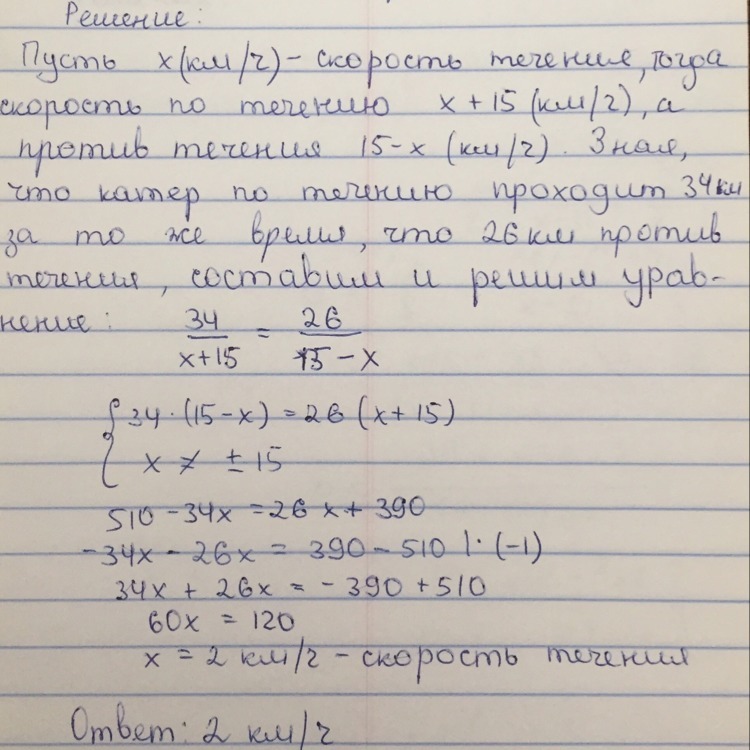 Решение:
Пусть x(км/ч) - скорость течения, тогда
скорость по течению x + 15 (км/ч), а
против течения 15 - x (км/ч). Зная,
что катер по течению проходит 34 км
за то же время, что 26 км против
течения, составим и решим урав-
нение: 34/(x+15) = 26/(15 - x)
{ 34 · (15 - x) = 26 (x + 15)
x ≠ ± 15
510 - 34x = 26x + 390
-34x - 26x = 390 - 510 | · (-1)
34x + 26x = - 390 + 510
60x = 120
x = 2 км/ч - скорость течения
Ответ: 2 км/ч